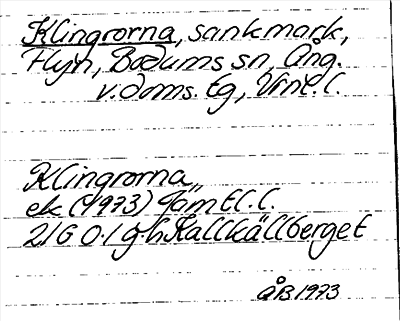 Klingrorna, sankmark,
Flyn, Bodums sn, Ång.
v. doms. tg, Vrnt. l.
Klingrorna
ek (1973) Jämtl. l.
21G 0.1 g-h Kallkällberget
ÅB 1973